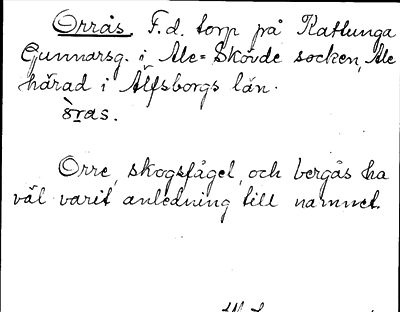 Orrås. F.d. torp på Katlunga
Gunnarsg. i Ale-Skövde socken, Ale
härad i Älfsborgs län.
òras.
Orre, skogsfågel, och bergås ha
väl varit anledning till namnet.